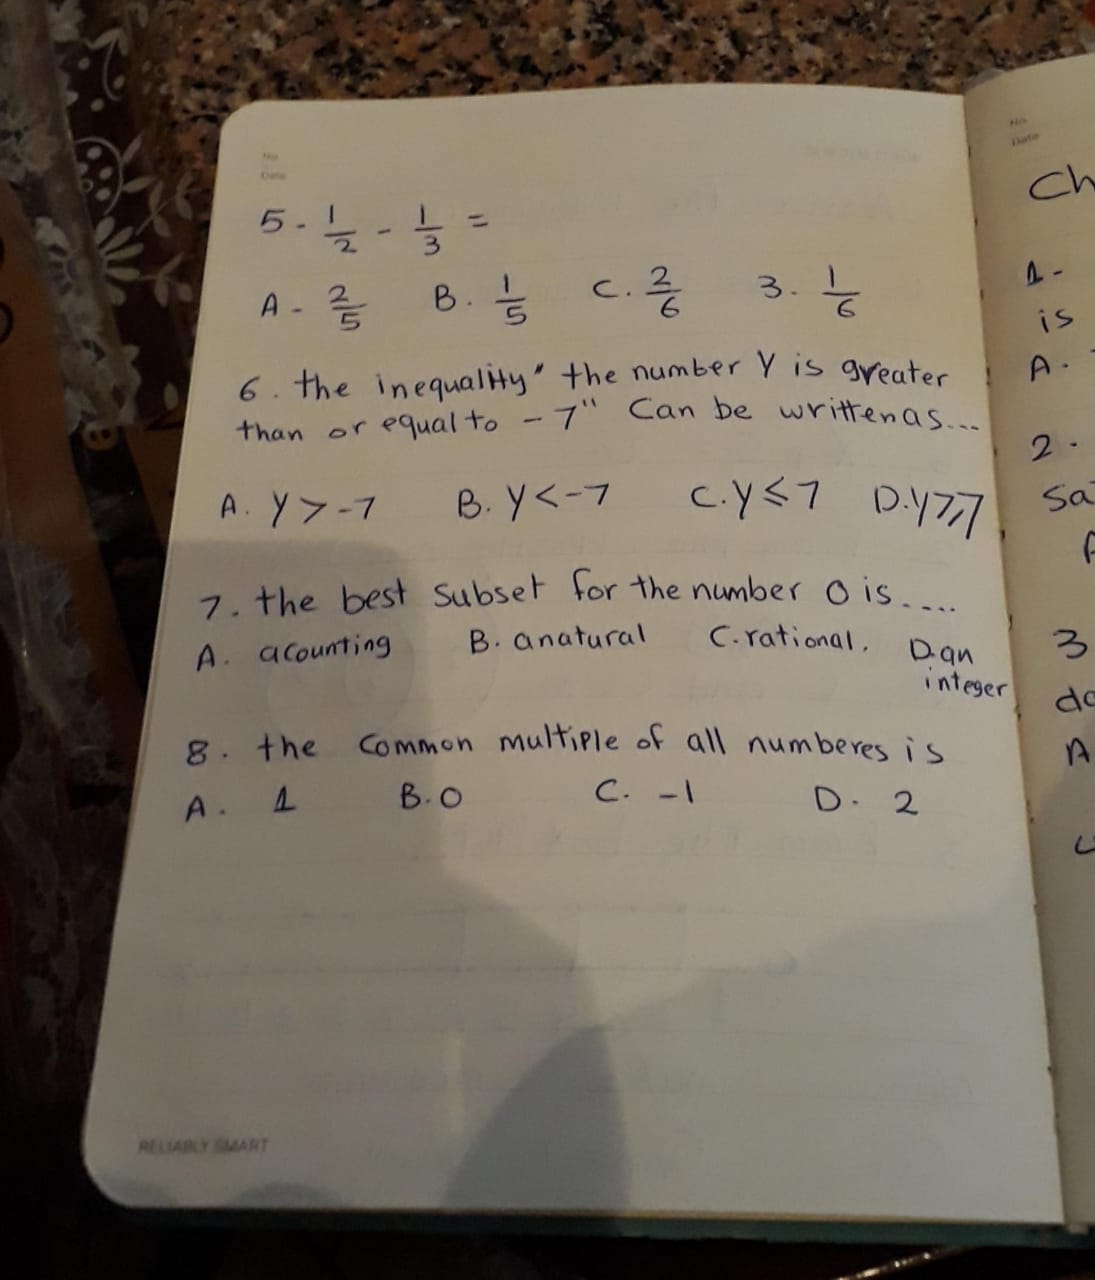 No.
Date
5 - 1/2 - 1/3 =
A - 2/5 B. 1/5 C. 2/6 3. 1/6
6. the inequality " the number Y is greater
than or equal to - 7" Can be written as...
A. Y > -7 B. Y < -7 C. Y ⩽ 7 D. Y ⩾ 7
7. the best Subset for the number 0 is....
A. acounting B. anatural C. rational. D. an
integer
8. the Common multiple of all numberes is
A. 1 B. 0 C. -1 D. 2
RELIABLY SMART
No.
Date
Ch
1-
is
A.
2.
Sa
3
do
A